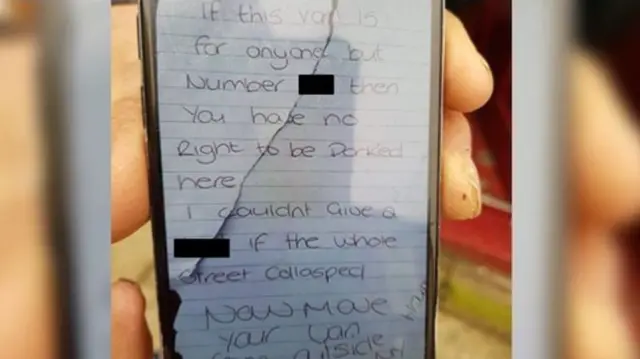 If this van is
for anyone but
Number then
You have no
Right to be Parked
here
I couldnt Give a
if the whole
Street Collasped
Now Move
Your Van
outside